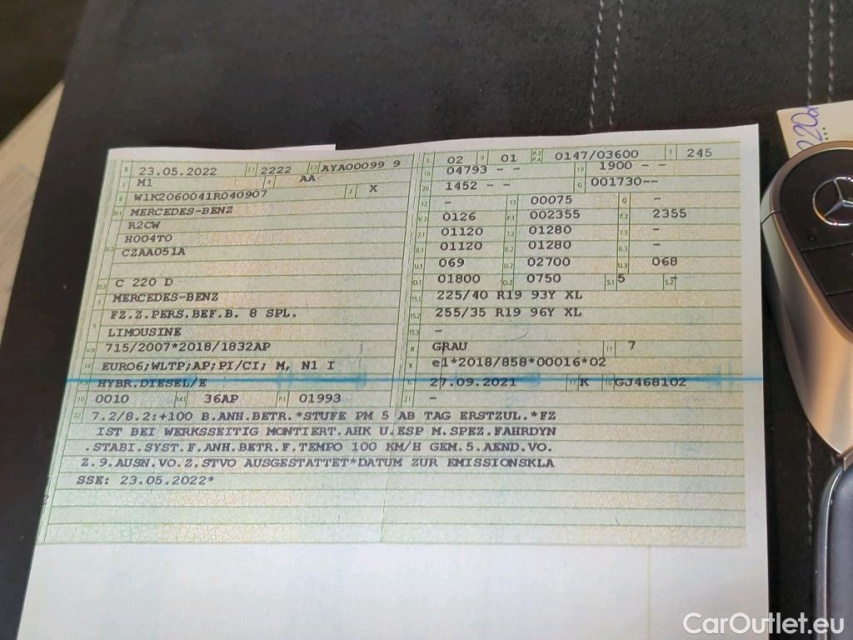 23.05.2022 2222 AYA00099 9
M1 AA
W1K2060041R040907 X
MERCEDES-BENZ
R2CW
H004T0
CZAA051A
C 220 D
MERCEDES-BENZ
FZ.Z.PERS.BEF.B. 8 SPL.
LIMOUSINE
715/2007*2018/1832AP
EURO6;WLTP;AP;PI/CI; M, N1 I
HYBR.DIESEL/E
0010 36AP 01993
02 01 0147/03600 245
04793 - - 1900 - -
1452 - - 001730--
- 00075 -
0126 002355 2355
01120 01280 -
01120 01280 -
069 02700 068
01800 0750 5 -
225/40 R19 93Y XL
255/35 R19 96Y XL
-
GRAU 7
e1*2018/858*00016*02
27.09.2021 K GJ468102
-
7.2/8.2:+100 B.ANH.BETR.*STUFE PM 5 AB TAG ERSTZUL.*FZ
IST BEI WERKSSEITIG MONTIERT.AHK U.ESP M.SPEZ.FAHRDYN
.STABI.SYST.F.ANH.BETR.F.TEMPO 100 KM/H GEM.5.AEND.VO.
Z.9.AUSN.VO.Z.STVO AUSGESTATTET*DATUM ZUR EMISSIONSKLA
SSE: 23.05.2022*
220d
CarOutlet.eu